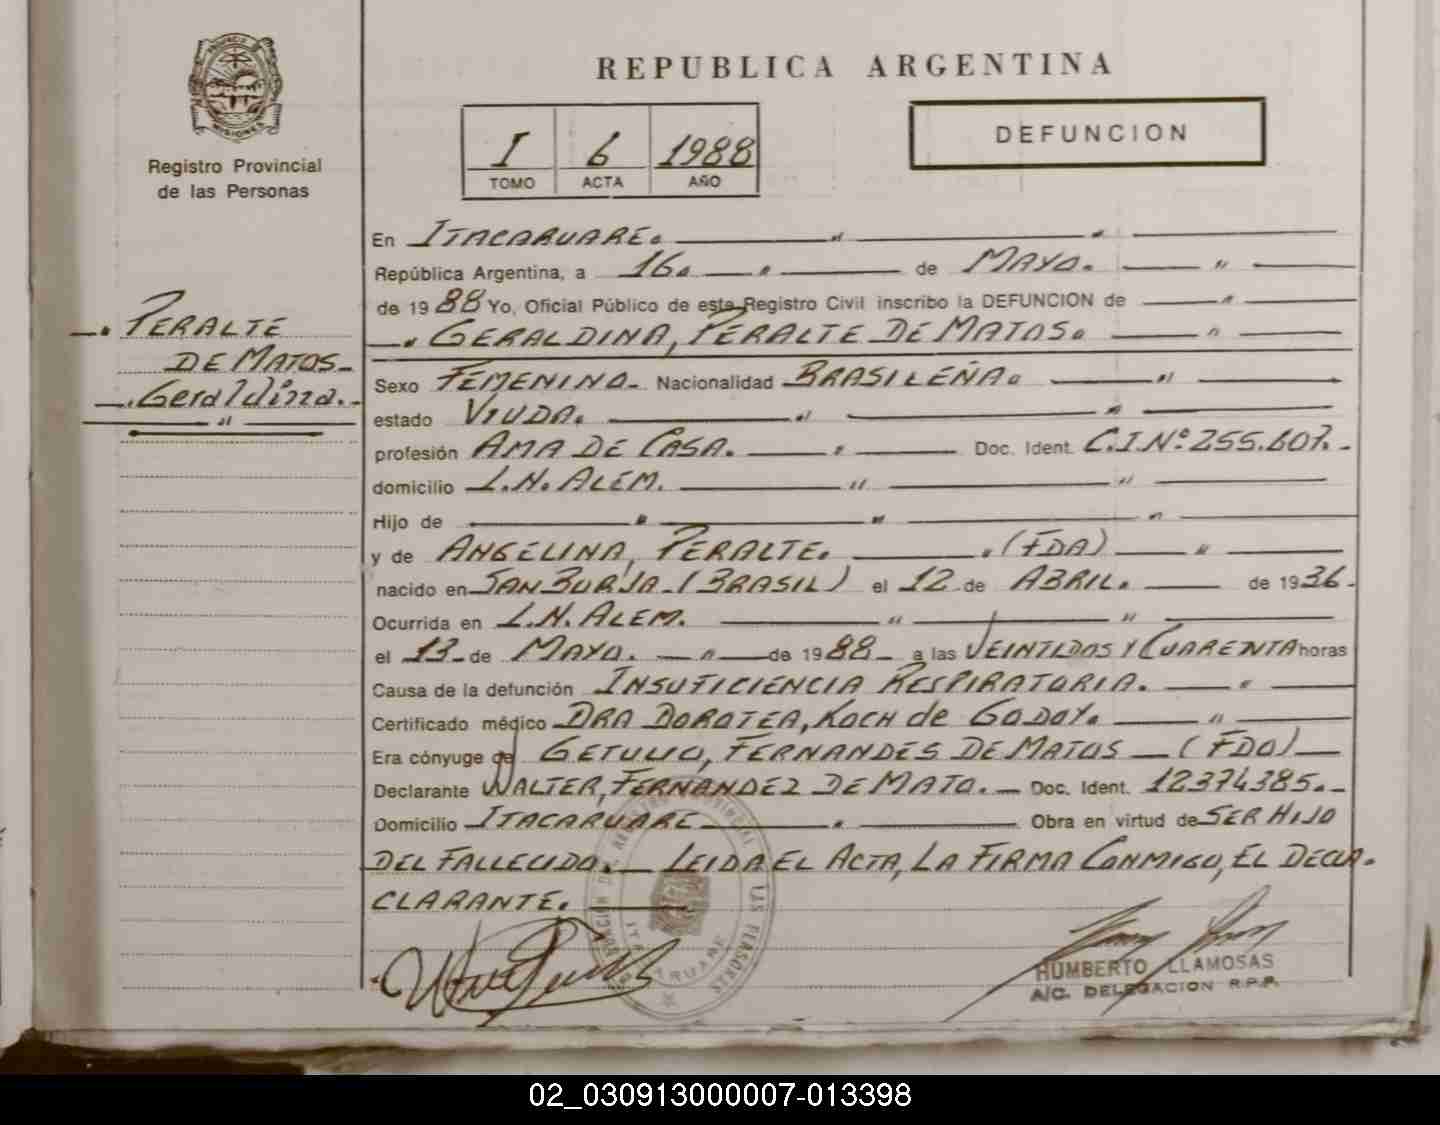 PROVINCIA DE
MISIONES
Registro Provincial
de las Personas
PERALTE
DE MATOS.
Geraldina.
REPUBLICA ARGENTINA
I 6 1988
TOMO ACTA AÑO
DEFUNCION
En ITACARUARE.
República Argentina, a 16. de MAYO.
de 1988 Yo, Oficial Público de este Registro Civil inscribo la DEFUNCION de
GERALDINA, PERALTE DE MATOS.
Sexo FEMENINO. Nacionalidad BRASILEÑA.
estado VIUDA.
profesión AMA DE CASA. Doc. Ident. C.I.Nº 255.607.
domicilio L.N. ALEM.
Hijo de
y de ANGELINA, PERALTE. (FDA)
nacido en SAN BURJA (BRASIL) el 12 de ABRIL. de 1936.
Ocurrida en L.N. ALEM.
el 13 de MAYO. de 1988 a las VEINTIDOS Y CUARENTA horas
Causa de la defunción INSUFICIENCIA RESPIRATORIA.
Certificado médico DRA DOROTEA, KOCH de GODOY.
Era cónyuge de GETULIO, FERNANDES DE MATOS (FDO)
Declarante WALTER, FERNANDEZ DE MATO. Doc. Ident. 12374385.
Domicilio ITACARUARE Obra en virtud de SER HIJO
DEL FALLECIDO. LEIDA EL ACTA, LA FIRMA CONMIGO, EL DECLA-
CLARANTE.
HUMBERTO LLAMOSAS
A/C. DELEGACION R.P.P.
02_030913000007-013398